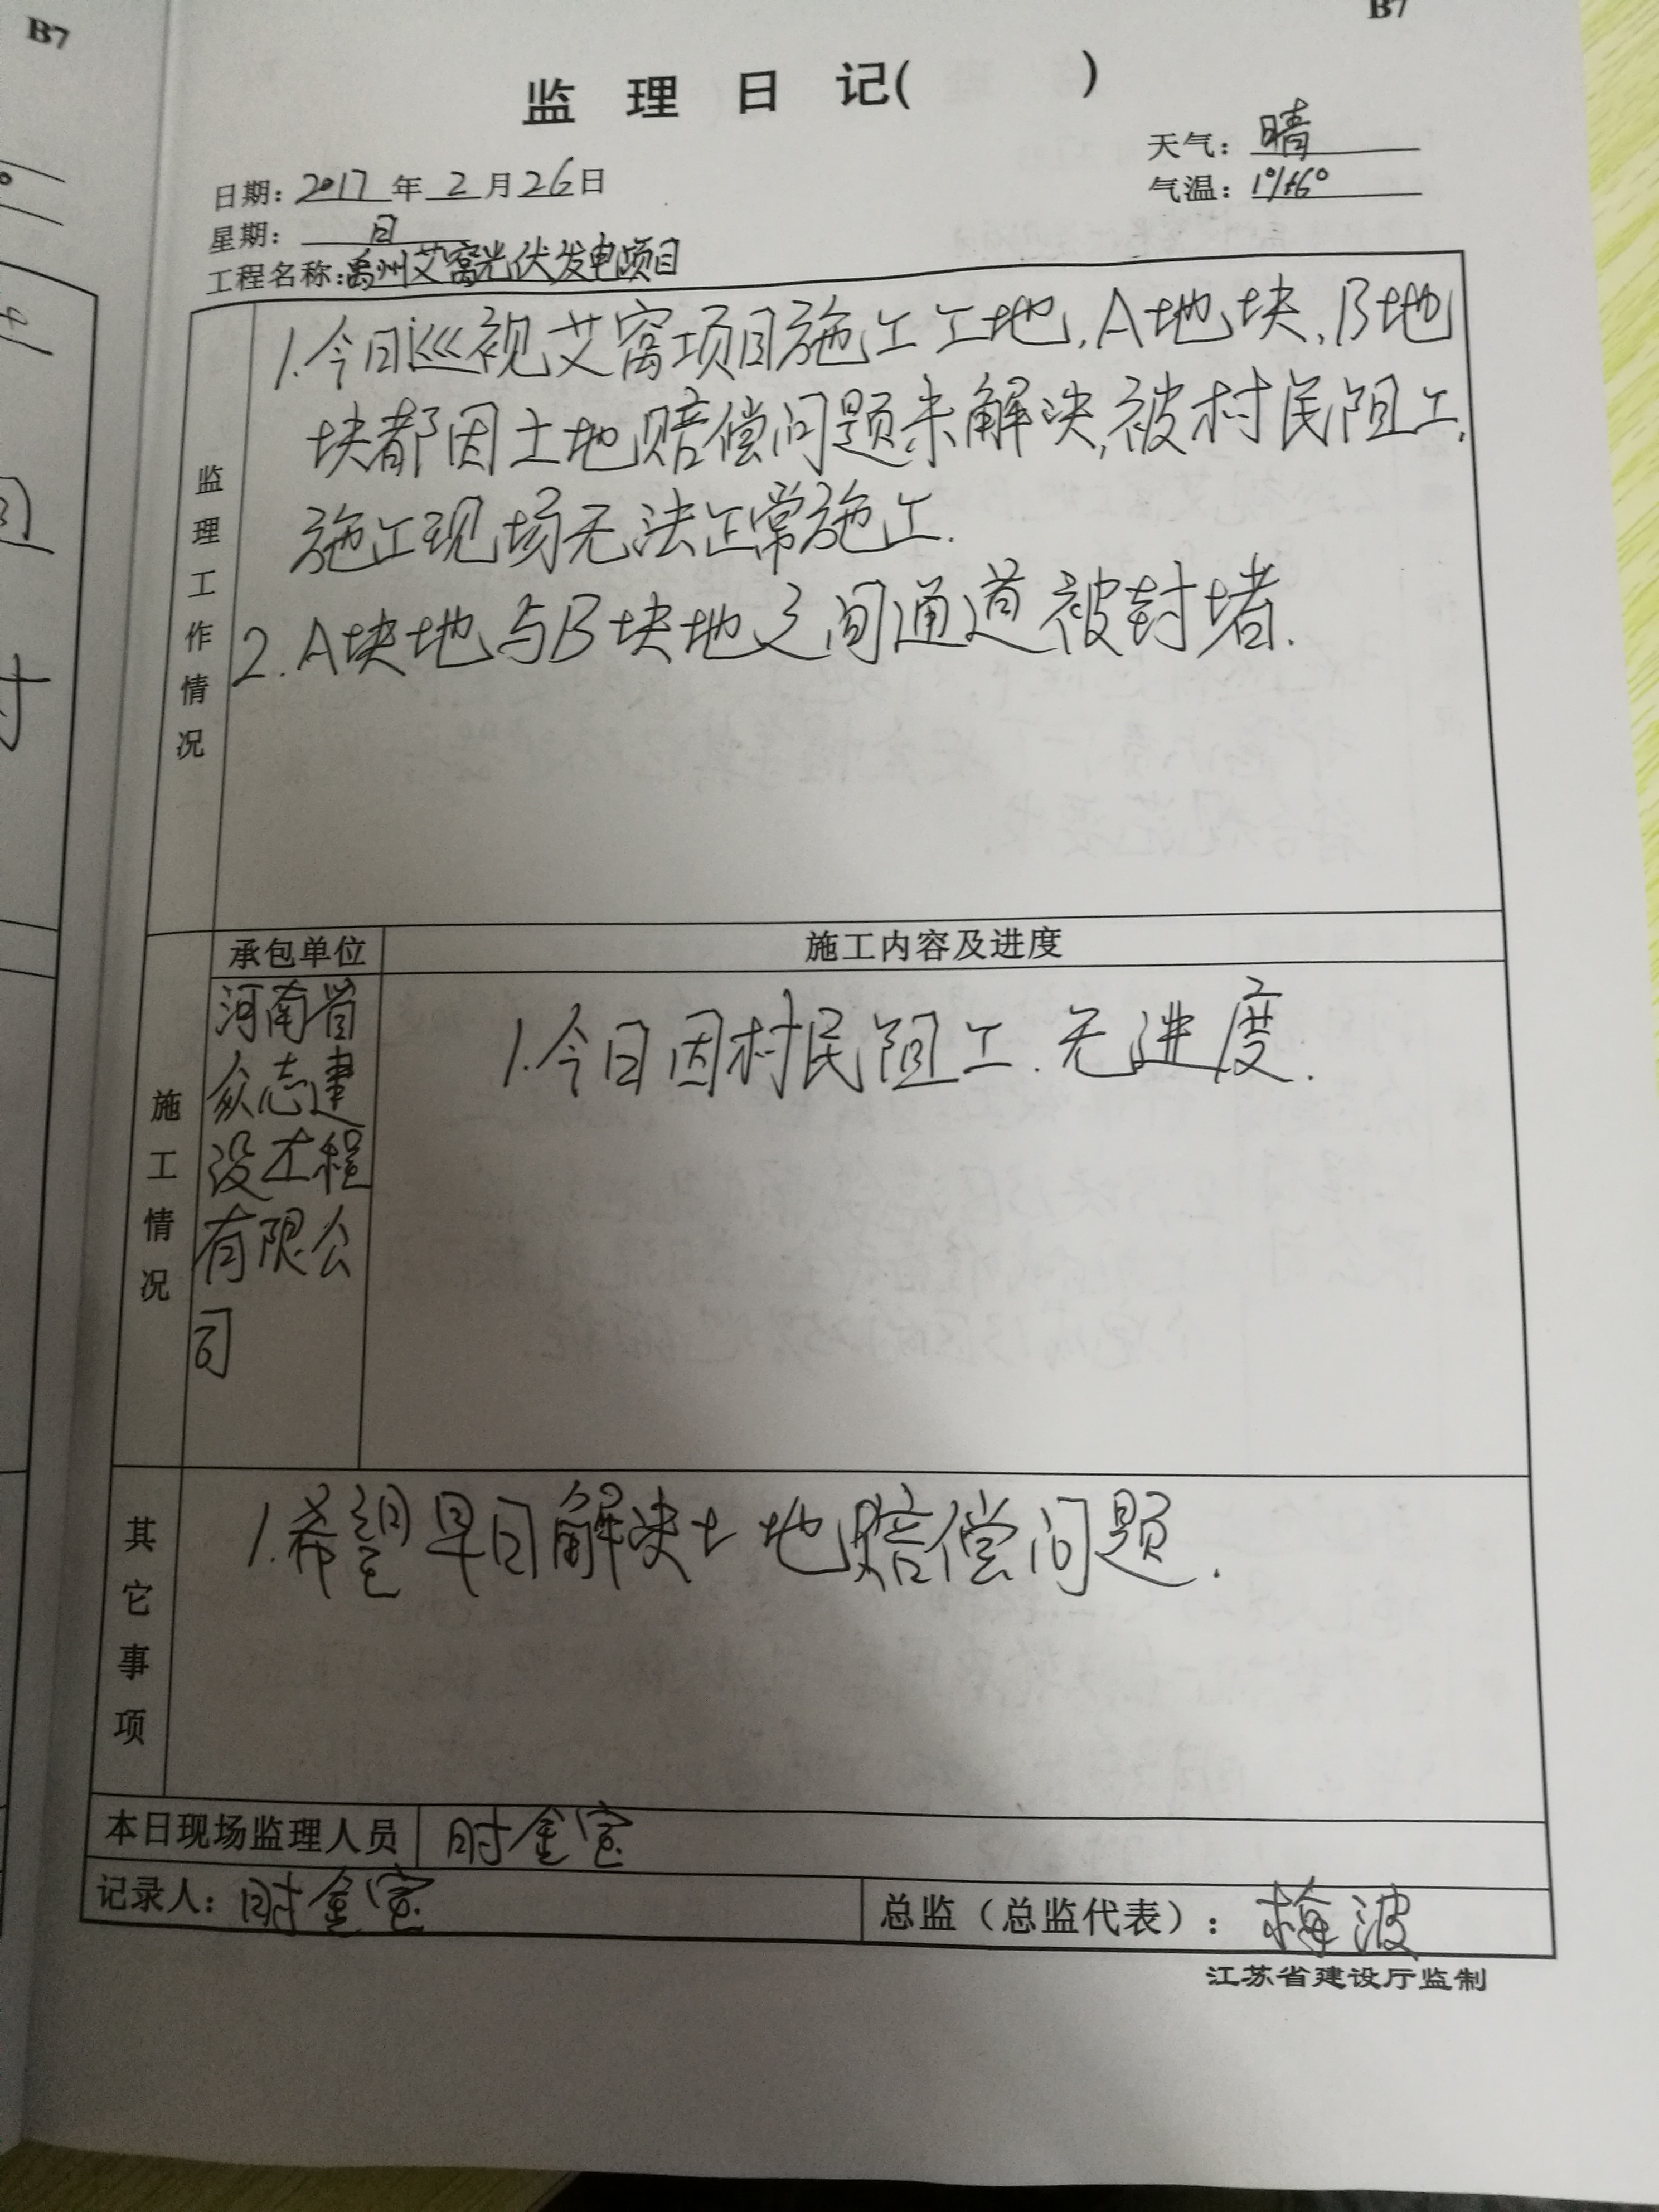 B7
B7
监理日记(　　)
天气：晴
日期：2017年2月26日
气温：1°/16°
星期：日
工程名称：禹州艾窝光伏发电项目
监理工作情况
1.今日巡视艾窝项目施工工地,A地块,B地
块都因土地赔偿问题未解决,被村民阻工,
施工现场无法正常施工.
2.A块地与B块地之间通道被封堵.
施工情况
承包单位
施工内容及进度
河南省
众志建
设工程
有限公
司
1.今日因村民阻工.无进度.
其它事项
1.希望早日解决土地赔偿问题.
本日现场监理人员 时金宝
记录人：时金宝
总监（总监代表）：梅波
江苏省建设厅监制